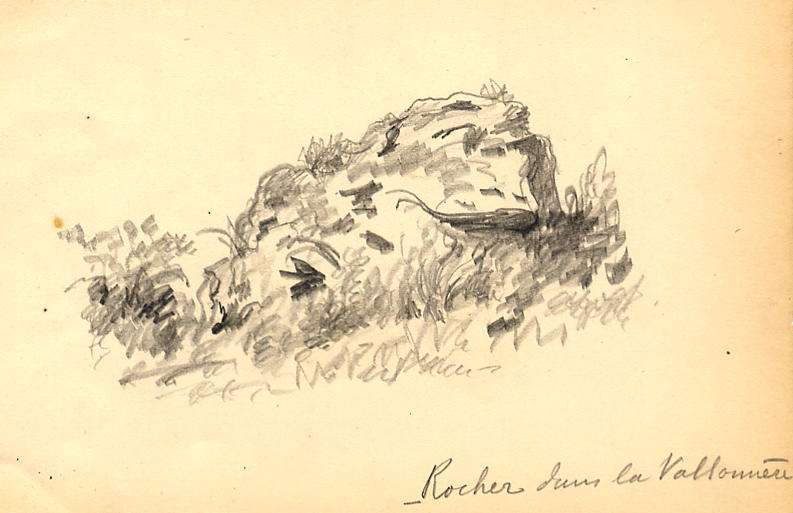 Rocher dans la Vallonnière